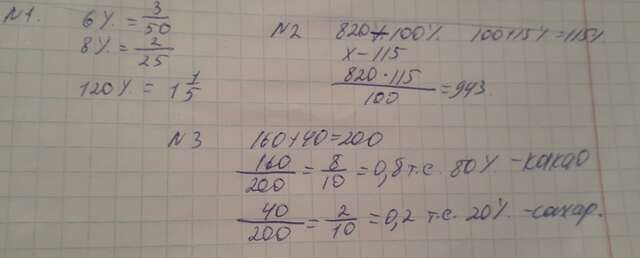 N1. 6% = 3/50
8% = 2/25
120% = 1 1/5
N2 820 - 100% 100+15% = 115%
x - 115
820 · 115 / 100 = 943.
N3 160+40=200
160/200 = 8/10 = 0,8 т.с. 80% - какао
40/200 = 2/10 = 0,2 т.с. 20% - сахар.